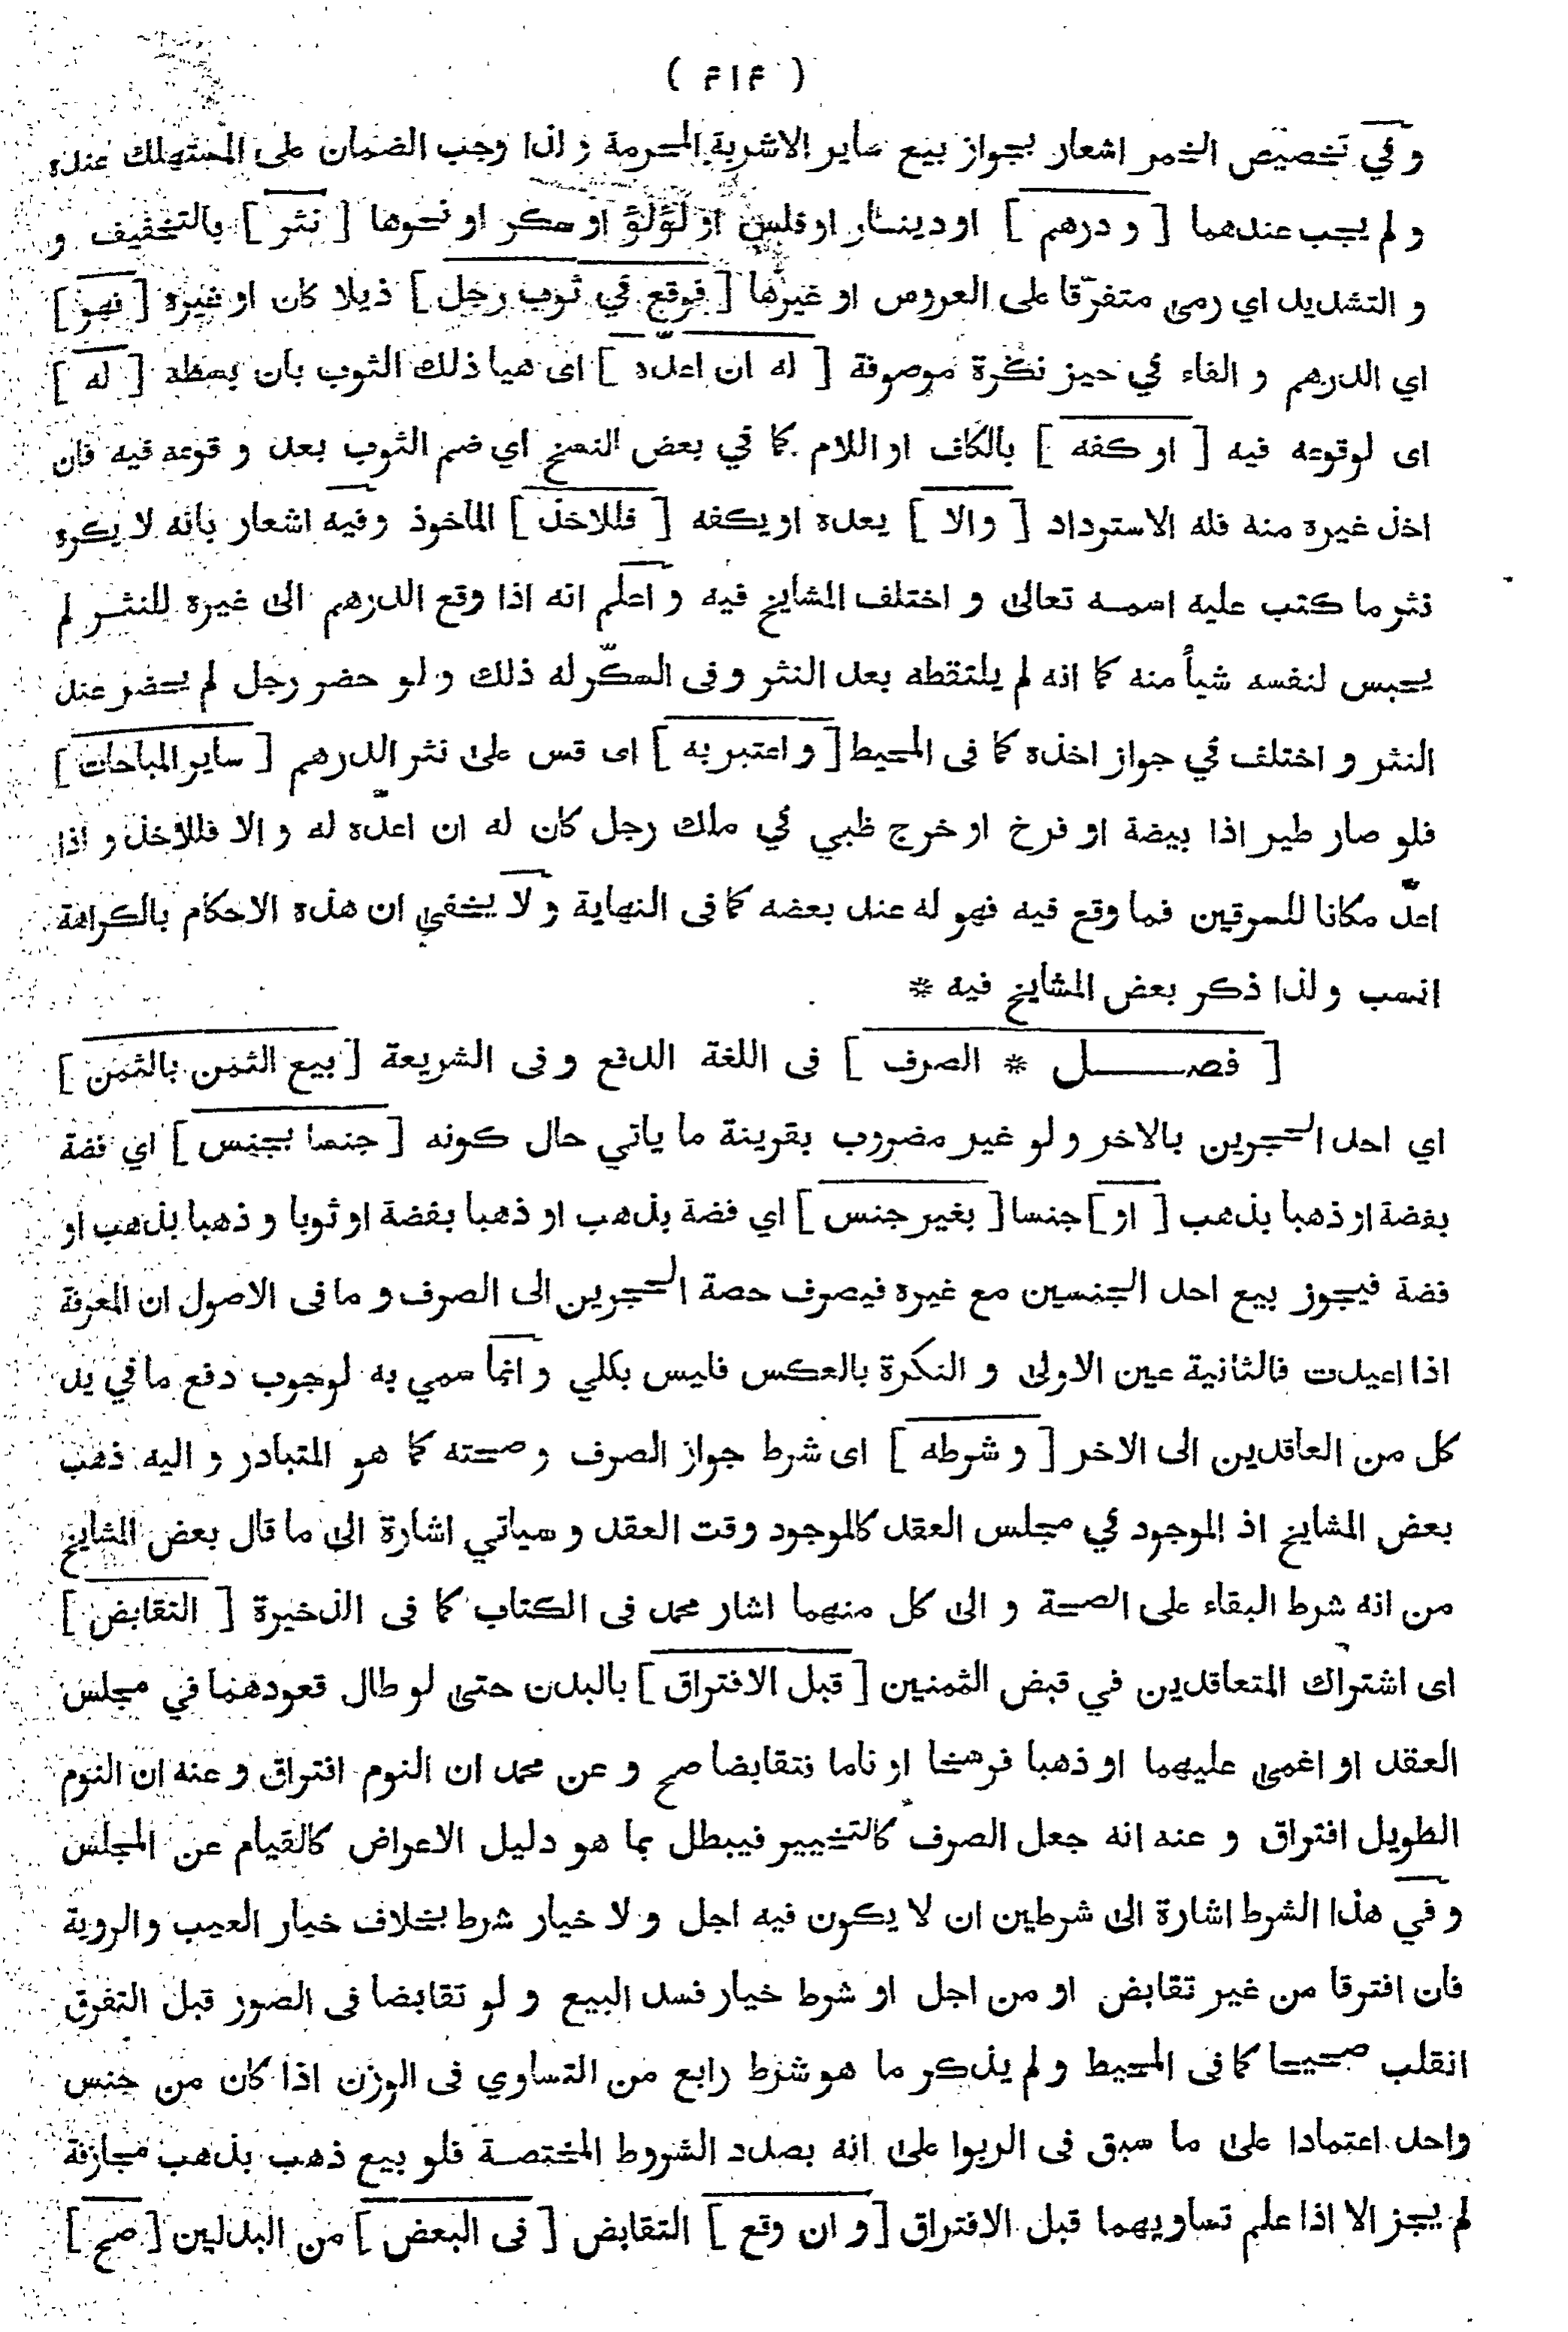 ( ۴۱۴ )
و في تخصيص الخمر اشعار بجواز بيع ساير الاشربة المحرمة و لذا وجب الضمان على المستهلك عنده
و لم يجب عندهما [ و درهم ] او دينار او فلس او لؤلؤ او سكر او نحوها [ نثر ] بالتخفيف و
و التشديد اي رمى متفرّقا على العروس او غيرها [ فوقع في ثوب رجل ] ذيلا كان او غيره [ فهو ]
اي الدرهم و الفاء في حيز نكرة موصوفة [ له ان اعدّه ] اى هيا ذلك الثوب بان بسطه [ له ]
اى لوقوعه فيه [ او كفه ] بالكاف او اللام كما في بعض النسخ اي ضم الثوب بعد و قوعه فيه فان
اخذ غيره منه فله الاسترداد [ والا ] يعده او يكفه [ فللاخذ ] الماخوذ و فيه اشعار بانه لا يكره
نثر ما كتب عليه اسمه تعالى و اختلف المشايخ فيه و اعلم انه اذا وقع الدرهم الى غيره للنثر لم
يحبس لنفسه شيأ منه كما انه لم يلتقطه بعد النثر و فى السكّر له ذلك و لو حضر رجل لم يحضر عند
النثر و اختلف في جواز اخذه كما فى المحيط [ و اعتبر به ] اى قس على نثر الدرهم [ ساير المباحات ]
فلو صار طير اذا بيضة او فرخ او خرج ظبي في ملك رجل كان له ان اعده له و الا فللاخذ و اذا
اعدّ مكانا للسرقين فما وقع فيه فهو له عند بعضه كما فى النهاية و لا يخفى ان هذه الاحكام بالكراهة
انسب و لذا ذكر بعض المشايخ فيه *
[ فصل * الصرف ] فى اللغة الدفع و فى الشريعة [ بيع الثمن بالثمن ]
اي احد الحجرين بالاخر و لو غير مضروب بقرينة ما ياتي حال كونه [ جنسا بجنس ] اي فضة
بفضة او ذهبا بذهب [ او ] جنسا [ بغير جنس ] اي فضة بذهب او ذهبا بفضة او ثوبا و ذهبا بذهب او
فضة فيجوز بيع احد الجنسين مع غيره فيصرف حصة الحجرين الى الصرف و ما فى الاصول ان المعرفة
اذا اعيدت فالثانية عين الاولى و النكرة بالعكس فليس بكلي و انما سمي به لوجوب دفع ما في يد
كل من العاقدين الى الاخر [ و شرطه ] اى شرط جواز الصرف و صحته كما هو المتبادر و اليه ذهب
بعض المشايخ اذ الموجود في مجلس العقد كالموجود وقت العقد و سياتي اشارة الى ما قال بعض المشايخ
من انه شرط البقاء على الصحة و الى كل منهما اشار محمد فى الكتاب كما فى الذخيرة [ التقابض ]
اى اشتراك المتعاقدين في قبض الثمنين [ قبل الافتراق ] بالبدن حتى لو طال قعودهما في مجلس
العقد او اغمى عليهما او ذهبا فرسخا او ناما فتقابضا صح و عن محمد ان النوم افتراق و عنه ان النوم
الطويل افتراق و عنه انه جعل الصرف كالتخيير فيبطل بما هو دليل الاعراض كالقيام عن المجلس
و في هذا الشرط اشارة الى شرطين ان لا يكون فيه اجل و لا خيار شرط بخلاف خيار العيب والروية
فان افترقا من غير تقابض او من اجل او شرط خيار فسد البيع و لو تقابضا فى الصور قبل التفرق
انقلب صحيحا كما فى المحيط و لم يذكر ما هو شرط رابع من التساوي فى الوزن اذا كان من جنس
واحد اعتمادا على ما سبق فى الربوا على انه بصدد الشروط المختصة فلو بيع ذهب بذهب مجازفة
لم يجز الا اذا علم تساويهما قبل الافتراق [ و ان وقع ] التقابض [ فى البعض ] من البدلين [ صح ]